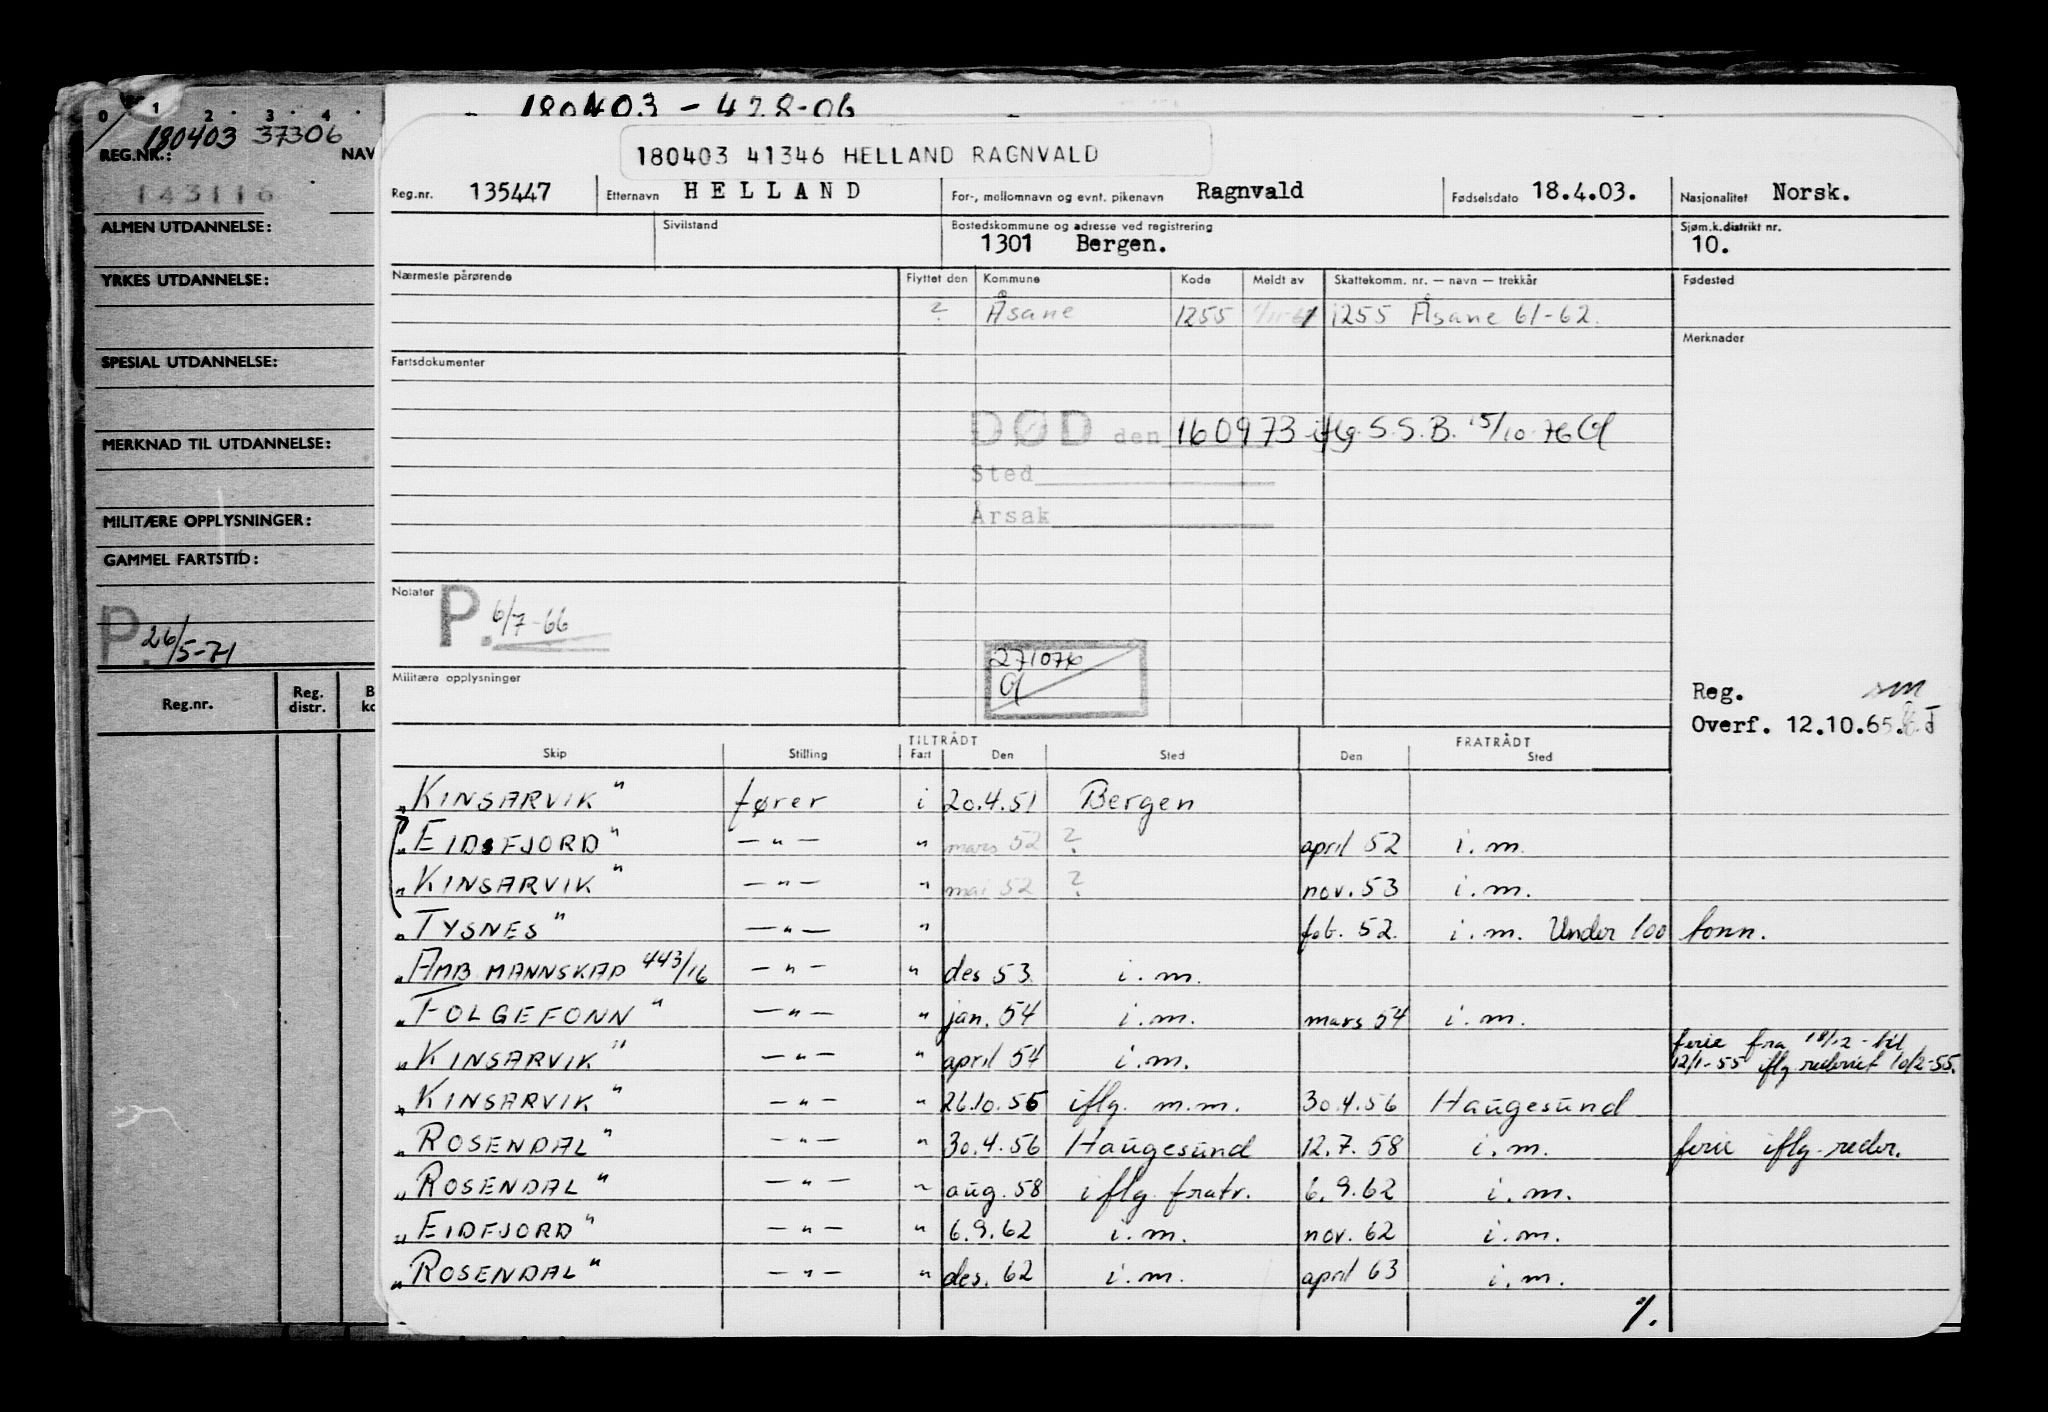 0 1 2 3 4
180403 37306
REG.NR.: NAV
143116
ALMEN UTDANNELSE:
YRKES UTDANNELSE:
SPESIAL UTDANNELSE:
MERKNAD TIL UTDANNELSE:
MILITÆRE OPPLYSNINGER:
GAMMEL FARTSTID:
P. 26/5-71
Reg.nr. Reg. distr.
180403 - 428-06
180403 41346 HELLAND RAGNVALD
Reg.nr. 135447 Etternavn HELLAND For-, mellomnavn og evnt. pikenavn Ragnvald Fødselsdato 18.4.03. Nasjonalitet Norsk.
Sivilstand Bostedskommune og adresse ved registrering Sjøm.k.distrikt nr.
1301 Bergen. 10.
Nærmeste pårørende Flyttet den Kommune Kode Meldt av Skattekomm. nr. — navn — trekkår Fødested
? Åsane 1255 1255 Åsane 61-62.
Merknader
Fartsdokumenter
DØD den 160973 iflg. S.S.B. 15/10-76 Gl
Sted
Årsak
Notater P. 6/7-66
271076
Gl
Militære opplysninger
Reg. sm
Overf. 12.10.65.
TILTRÅDT FRATRÅDT
Skip Stilling Fart Den Sted Den Sted
„KINSARVIK" fører i 20.4.51 Bergen
„EIDSFJORD" —"— " mars 52 ? april 52 i.m.
„KINSARVIK" —"— " mai 52 ? nov. 53 i.m.
„TYSNES" —"— " feb. 52. i.m. Under 100 tonn.
„AMB MANNSKAP 443/16 —"— " des 53 i.m.
„FOLGEFONN" —"— " jan. 54 i.m. mars 54 i.m.
„KINSARVIK" —"— " april 54 i.m. ferie fra 18/12 - til
12/1-55 iflg rederiet 10/2-55.
„KINSARVIK" —"— " 26.10.55 iflg. m.m. 30.4.56 Haugesund
„ROSENDAL" —"— " 30.4.56 Haugesund 12.7.58 i.m. ferie iflg. reder.
„ROSENDAL" —"— " aug. 58 iflg. fratr. 6.9.62 i.m.
„EIDFJORD" —"— " 6.9.62 i.m. nov. 62 i.m.
„ROSENDAL" —"— " des. 62 i.m. april 63 i.m.
%.